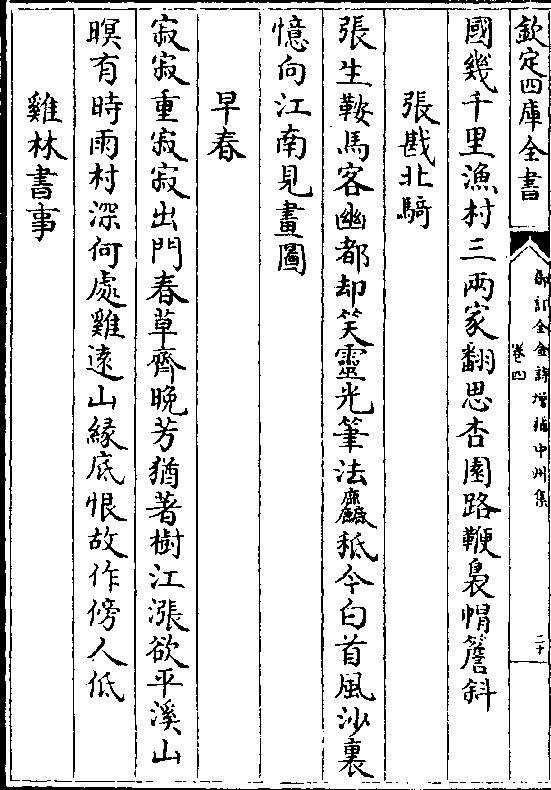 欽定四庫全書
御訂全金詩增補中州集
卷四
二十
國幾千里漁村三兩家翻思杏園路鞭裊㡌簷斜
張戡北騎
張生鞍馬客幽都却笑靈光筆法麤秪今白首風沙裏
憶向江南見畫圖
早春
寂寂重寂寂出門春草齊晚芳猶著樹江漲欲平溪山
暝有時雨村深何處雞遠山緣底恨故作傍人低
雞林書事